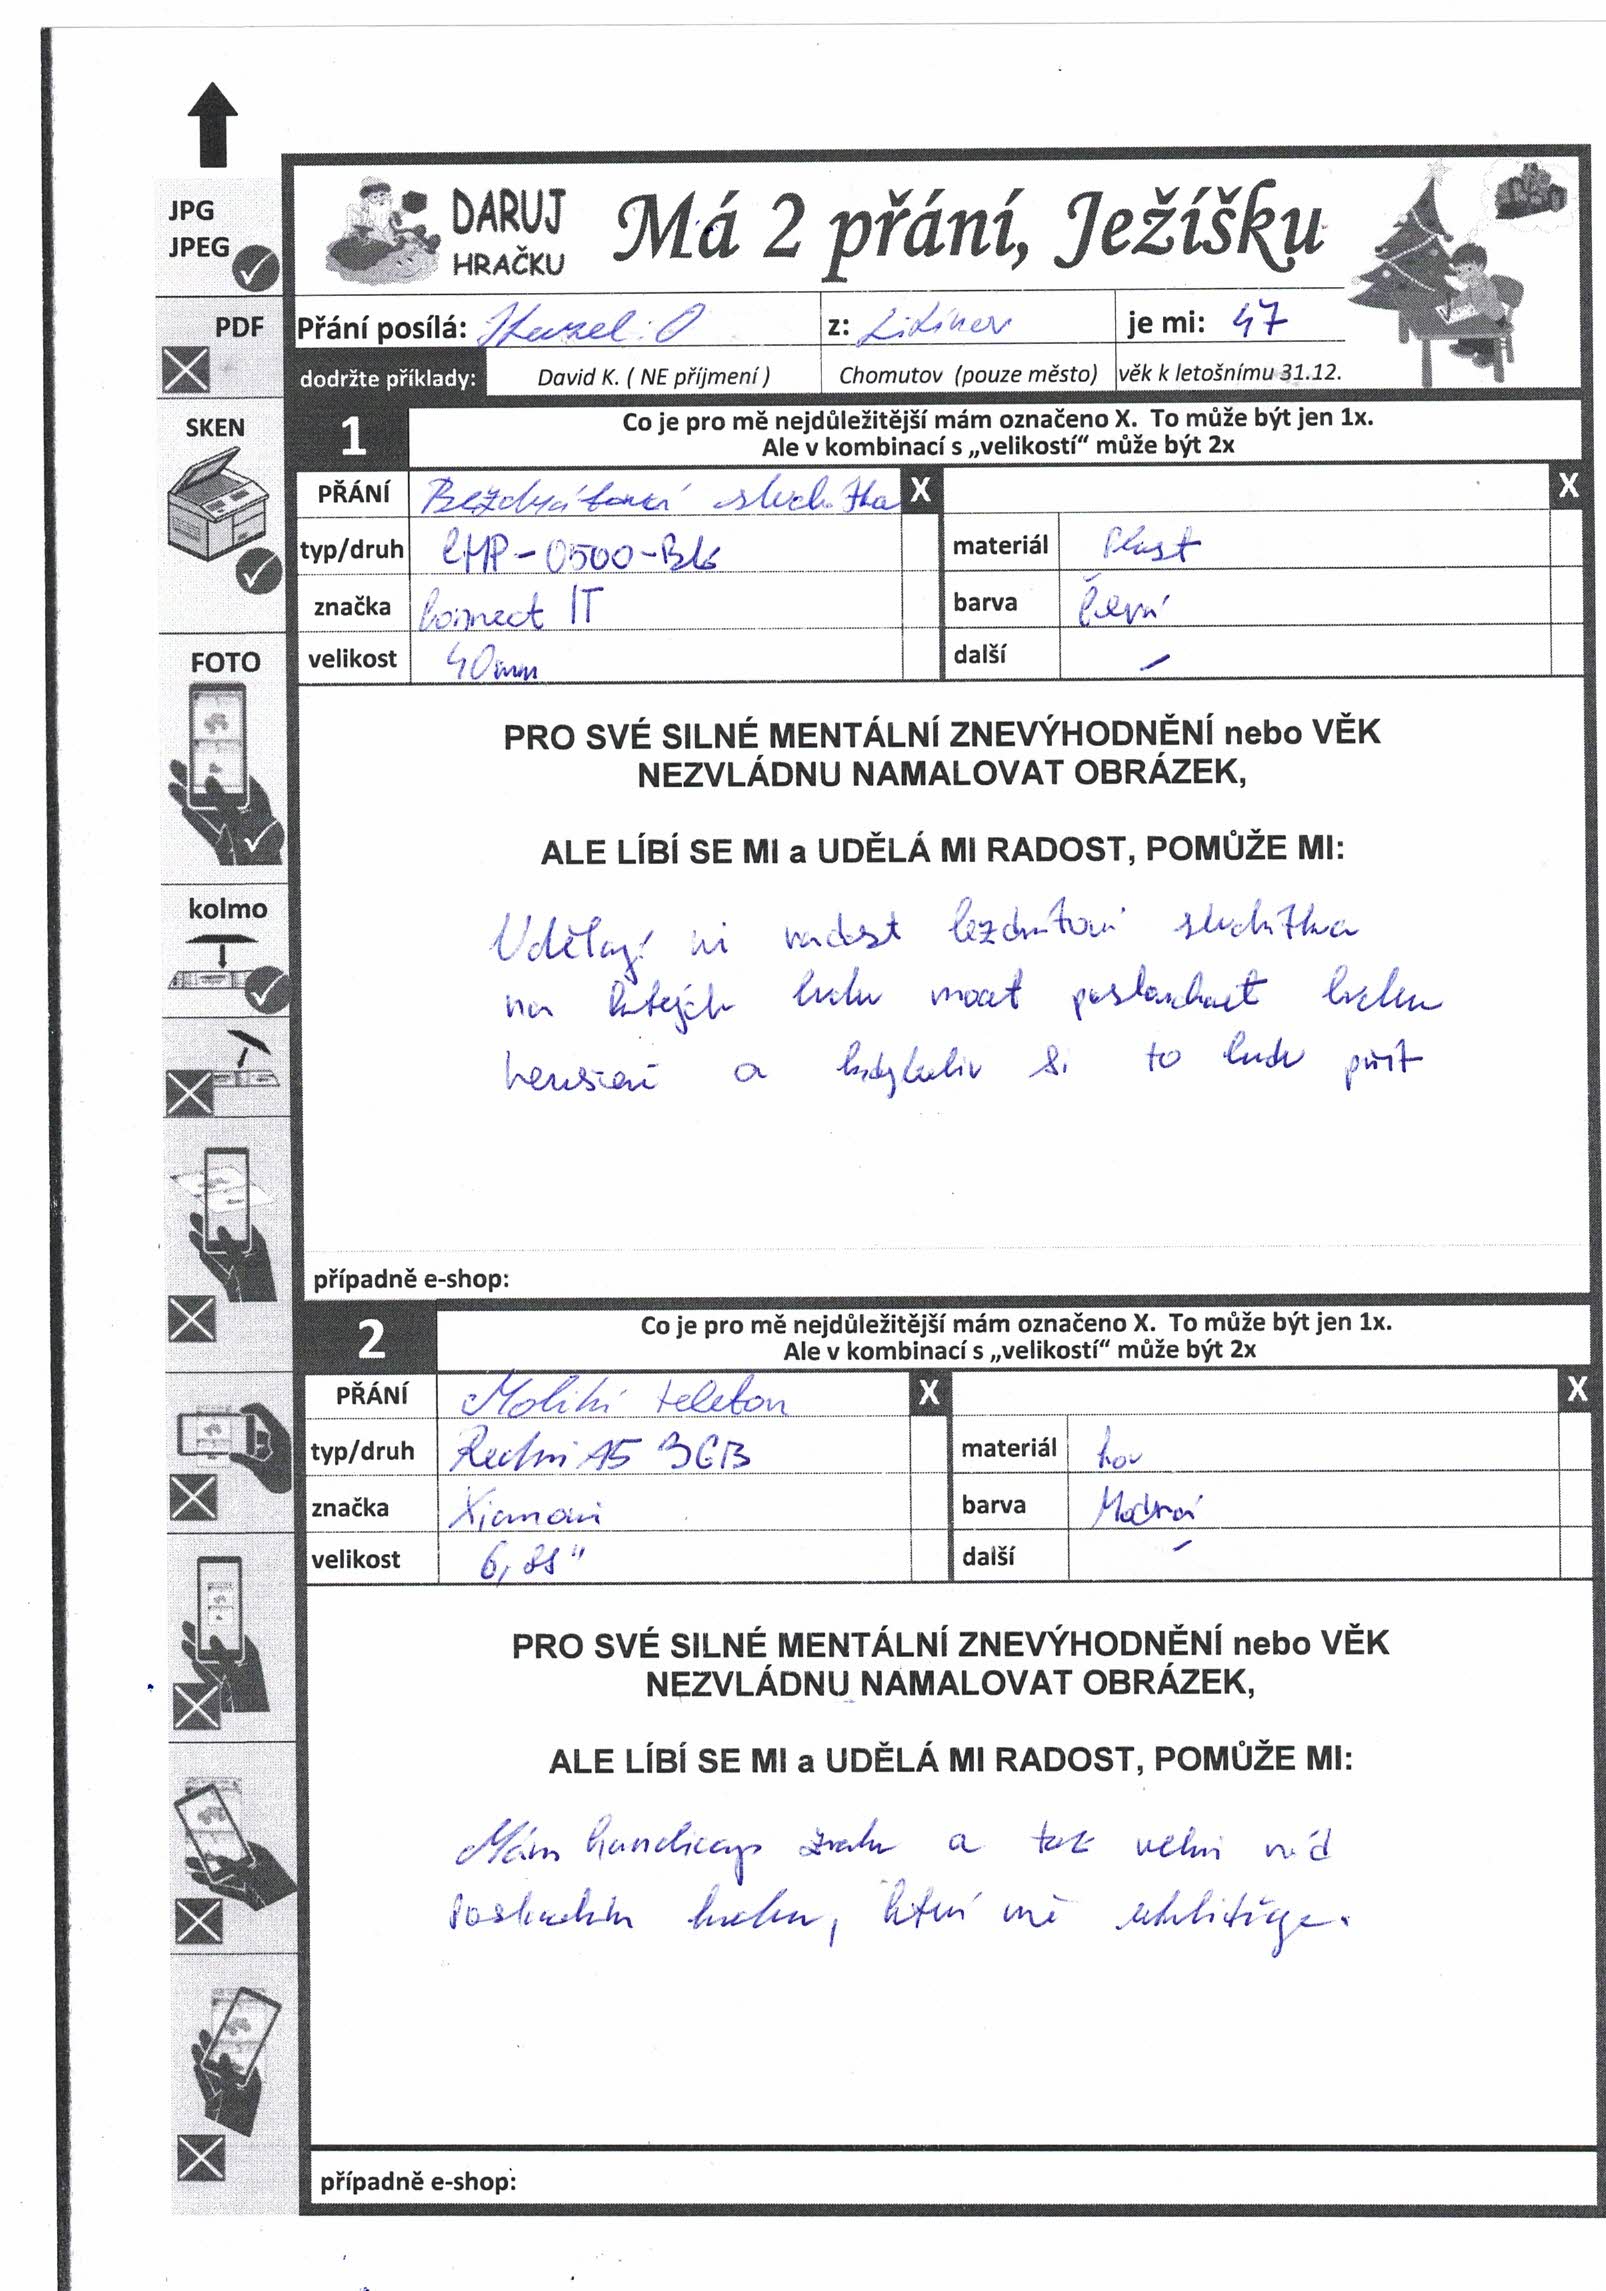 JPG
JPEG
DARUJ
HRAČKU
Má 2 přání, Ježíšku
PDF
Přání posílá: Karel. O z: Litvínov je mi: 47
dodržte příklady: David K. ( NE příjmení ) Chomutov (pouze město) věk k letošnímu 31.12.
SKEN
1
Co je pro mě nejdůležitější mám označeno X. To může být jen 1x.
Ale v kombinací s „velikostí“ může být 2x
PŘÁNÍ Bezdrátová sluchátka X X
typ/druh CHP-0500-BK materiál Plast
značka Connect IT barva
velikost 40mm další -
FOTO
PRO SVÉ SILNÉ MENTÁLNÍ ZNEVÝHODNĚNÍ nebo VĚK
NEZVLÁDNU NAMALOVAT OBRÁZEK,
ALE LÍBÍ SE MI a UDĚLÁ MI RADOST, POMŮŽE MI:
kolmo
Udělají mi radost bezdrátová sluchátka
na kterých budu moct poslouchat hudbu
a kdykoliv si to budu přát
případně e-shop:
2
Co je pro mě nejdůležitější mám označeno X. To může být jen 1x.
Ale v kombinací s „velikostí“ může být 2x
PŘÁNÍ Mobilní telefon X X
typ/druh Redmi A5 3GB materiál kov
značka Xiaomi barva Modrá
velikost 6,88" další -
PRO SVÉ SILNÉ MENTÁLNÍ ZNEVÝHODNĚNÍ nebo VĚK
NEZVLÁDNU NAMALOVAT OBRÁZEK,
ALE LÍBÍ SE MI a UDĚLÁ MI RADOST, POMŮŽE MI:
Mám handicap zraku a tak velmi rád
poslouchám hudbu, která mě uklidňuje.
případně e-shop: